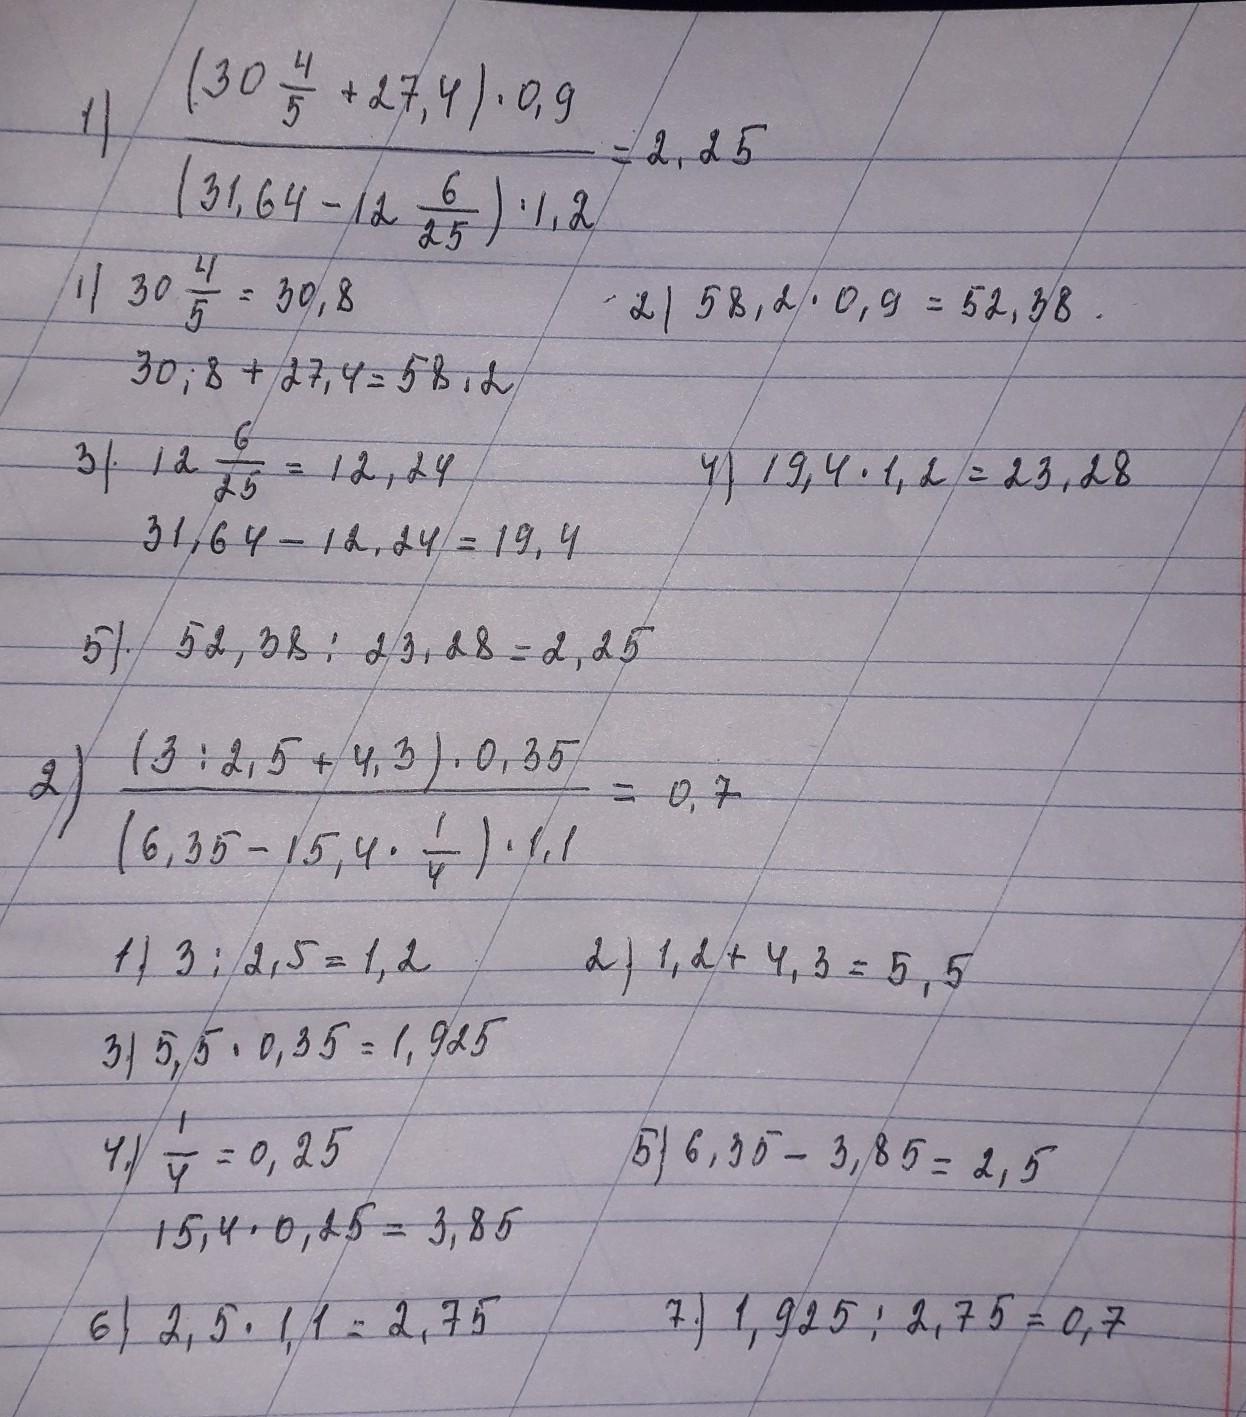 1) (30 4/5 + 27,4) · 0,9 / (31,64 - 12 6/25) · 1,2 = 2,25
1) 30 4/5 = 30,8 2) 58,2 · 0,9 = 52,38.
30,8 + 27,4 = 58,2
3). 12 6/25 = 12,24 4) 19,4 · 1,2 = 23,28
31,64 - 12,24 = 19,4
5). 52,38 : 23,28 = 2,25
2) (3 : 2,5 + 4,3) · 0,35 / (6,35 - 15,4 · 1/4) · 1,1 = 0,7
1) 3 : 2,5 = 1,2 2) 1,2 + 4,3 = 5,5
3) 5,5 · 0,35 = 1,925
4.) 1/4 = 0,25 5) 6,35 - 3,85 = 2,5
15,4 · 0,25 = 3,85
6) 2,5 · 1,1 = 2,75 7.) 1,925 : 2,75 = 0,7